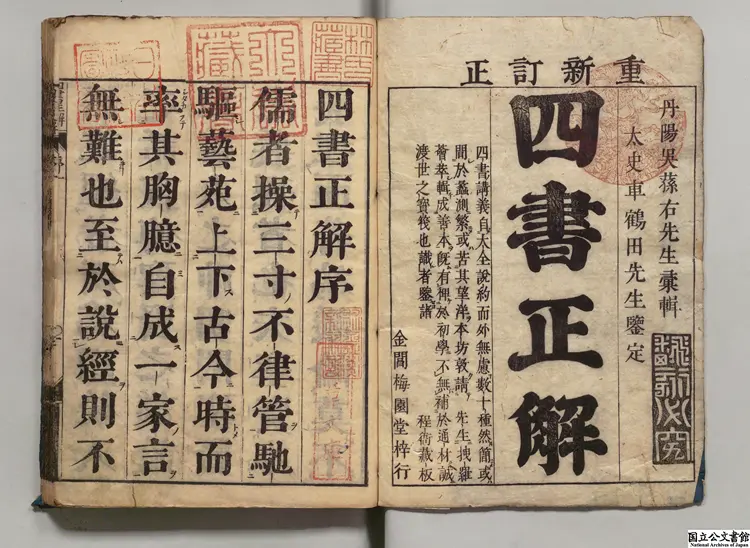 重新訂正
丹陽吳蓀右先生彙輯
太史車鶴田先生鑒定
翻刻必究
四書正解
四書講義自大全說約而外無慮數十種然簡或
間於蠡測繁或苦其望洋本坊敦請 先生搜羅
薈萃輯成善本既有裨於初學不無補於通材誠
渡世之寶筏也識者鑒諸 程衙藏板
金閶梅園堂梓行
四書正解序
儒者操三寸不律管馳
驅藝苑上下古今時而
率其胸臆自成一家言
無難也至於說經則不
国立公文書館
National Archives of Japan